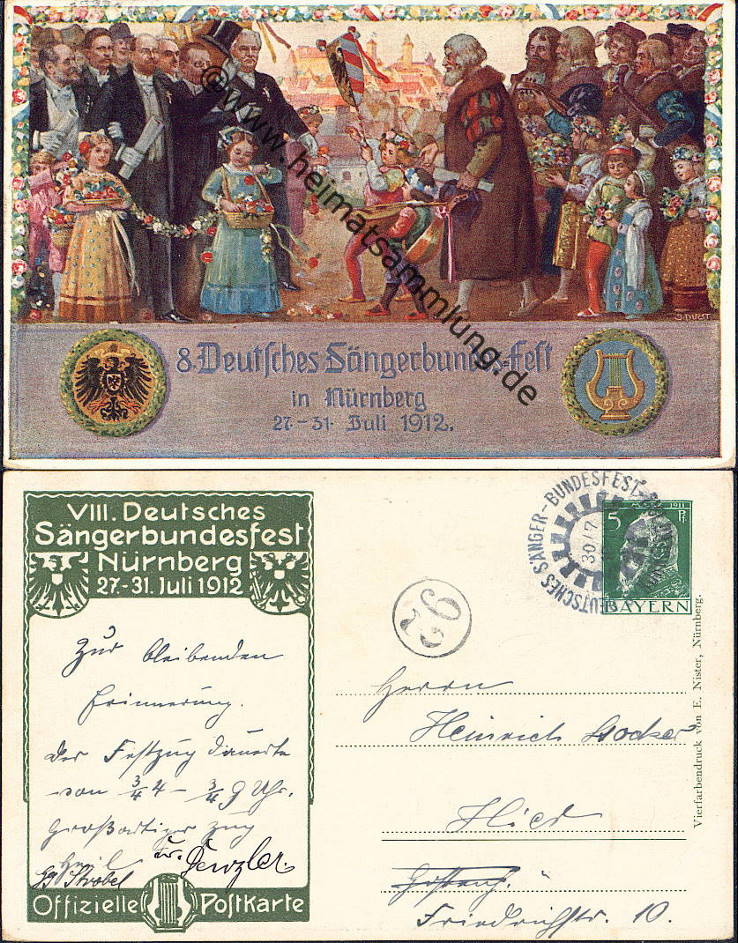 ©www.heimatsammlung.de
J. DUST.
8. Deutsches Sängerbundes-Fest
in Nürnberg
27-31. Juli 1912.
VIII. Deutsches
Sängerbundesfest
Nürnberg
27-31. Juli 1912
DEUTSCHES SÄNGER-BUNDESFEST-
30/7
5 Pf
1911
BAYERN
92
Zur bleibenden
Erinnerung.
Der Festzug dauerte
von 3/4 4 - 3/4 9 Uhr.
Großartiger Zug
Heil
Strobel
Offizielle Postkarte
Herrn
Heinrich
Friedrichstr. 10.
Vierfarbendruck von E. Nister, Nürnberg.